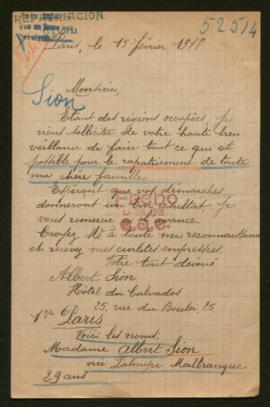 52514
Paris, le 15 février 1918
Monsieur,
Sion
Etant des régions occupées, je
viens solliciter de votre haute bien
veillance de faire tout ce qui est
possible pour le rapatriement de toute
ma chère famille.
Espérant que vos démarches
donneront un bon résultat je
vous remercie d'avance.
Croyez Mr à toute ma reconnaissance
et recevez mes civilités empressées.
Votre tout dévoué
Albert Sion
Hôtel du Calvados
25, rue du Bouloi, 25
Paris
Voici les noms:
Madame Albert Sion
née Malbranque
29 ans